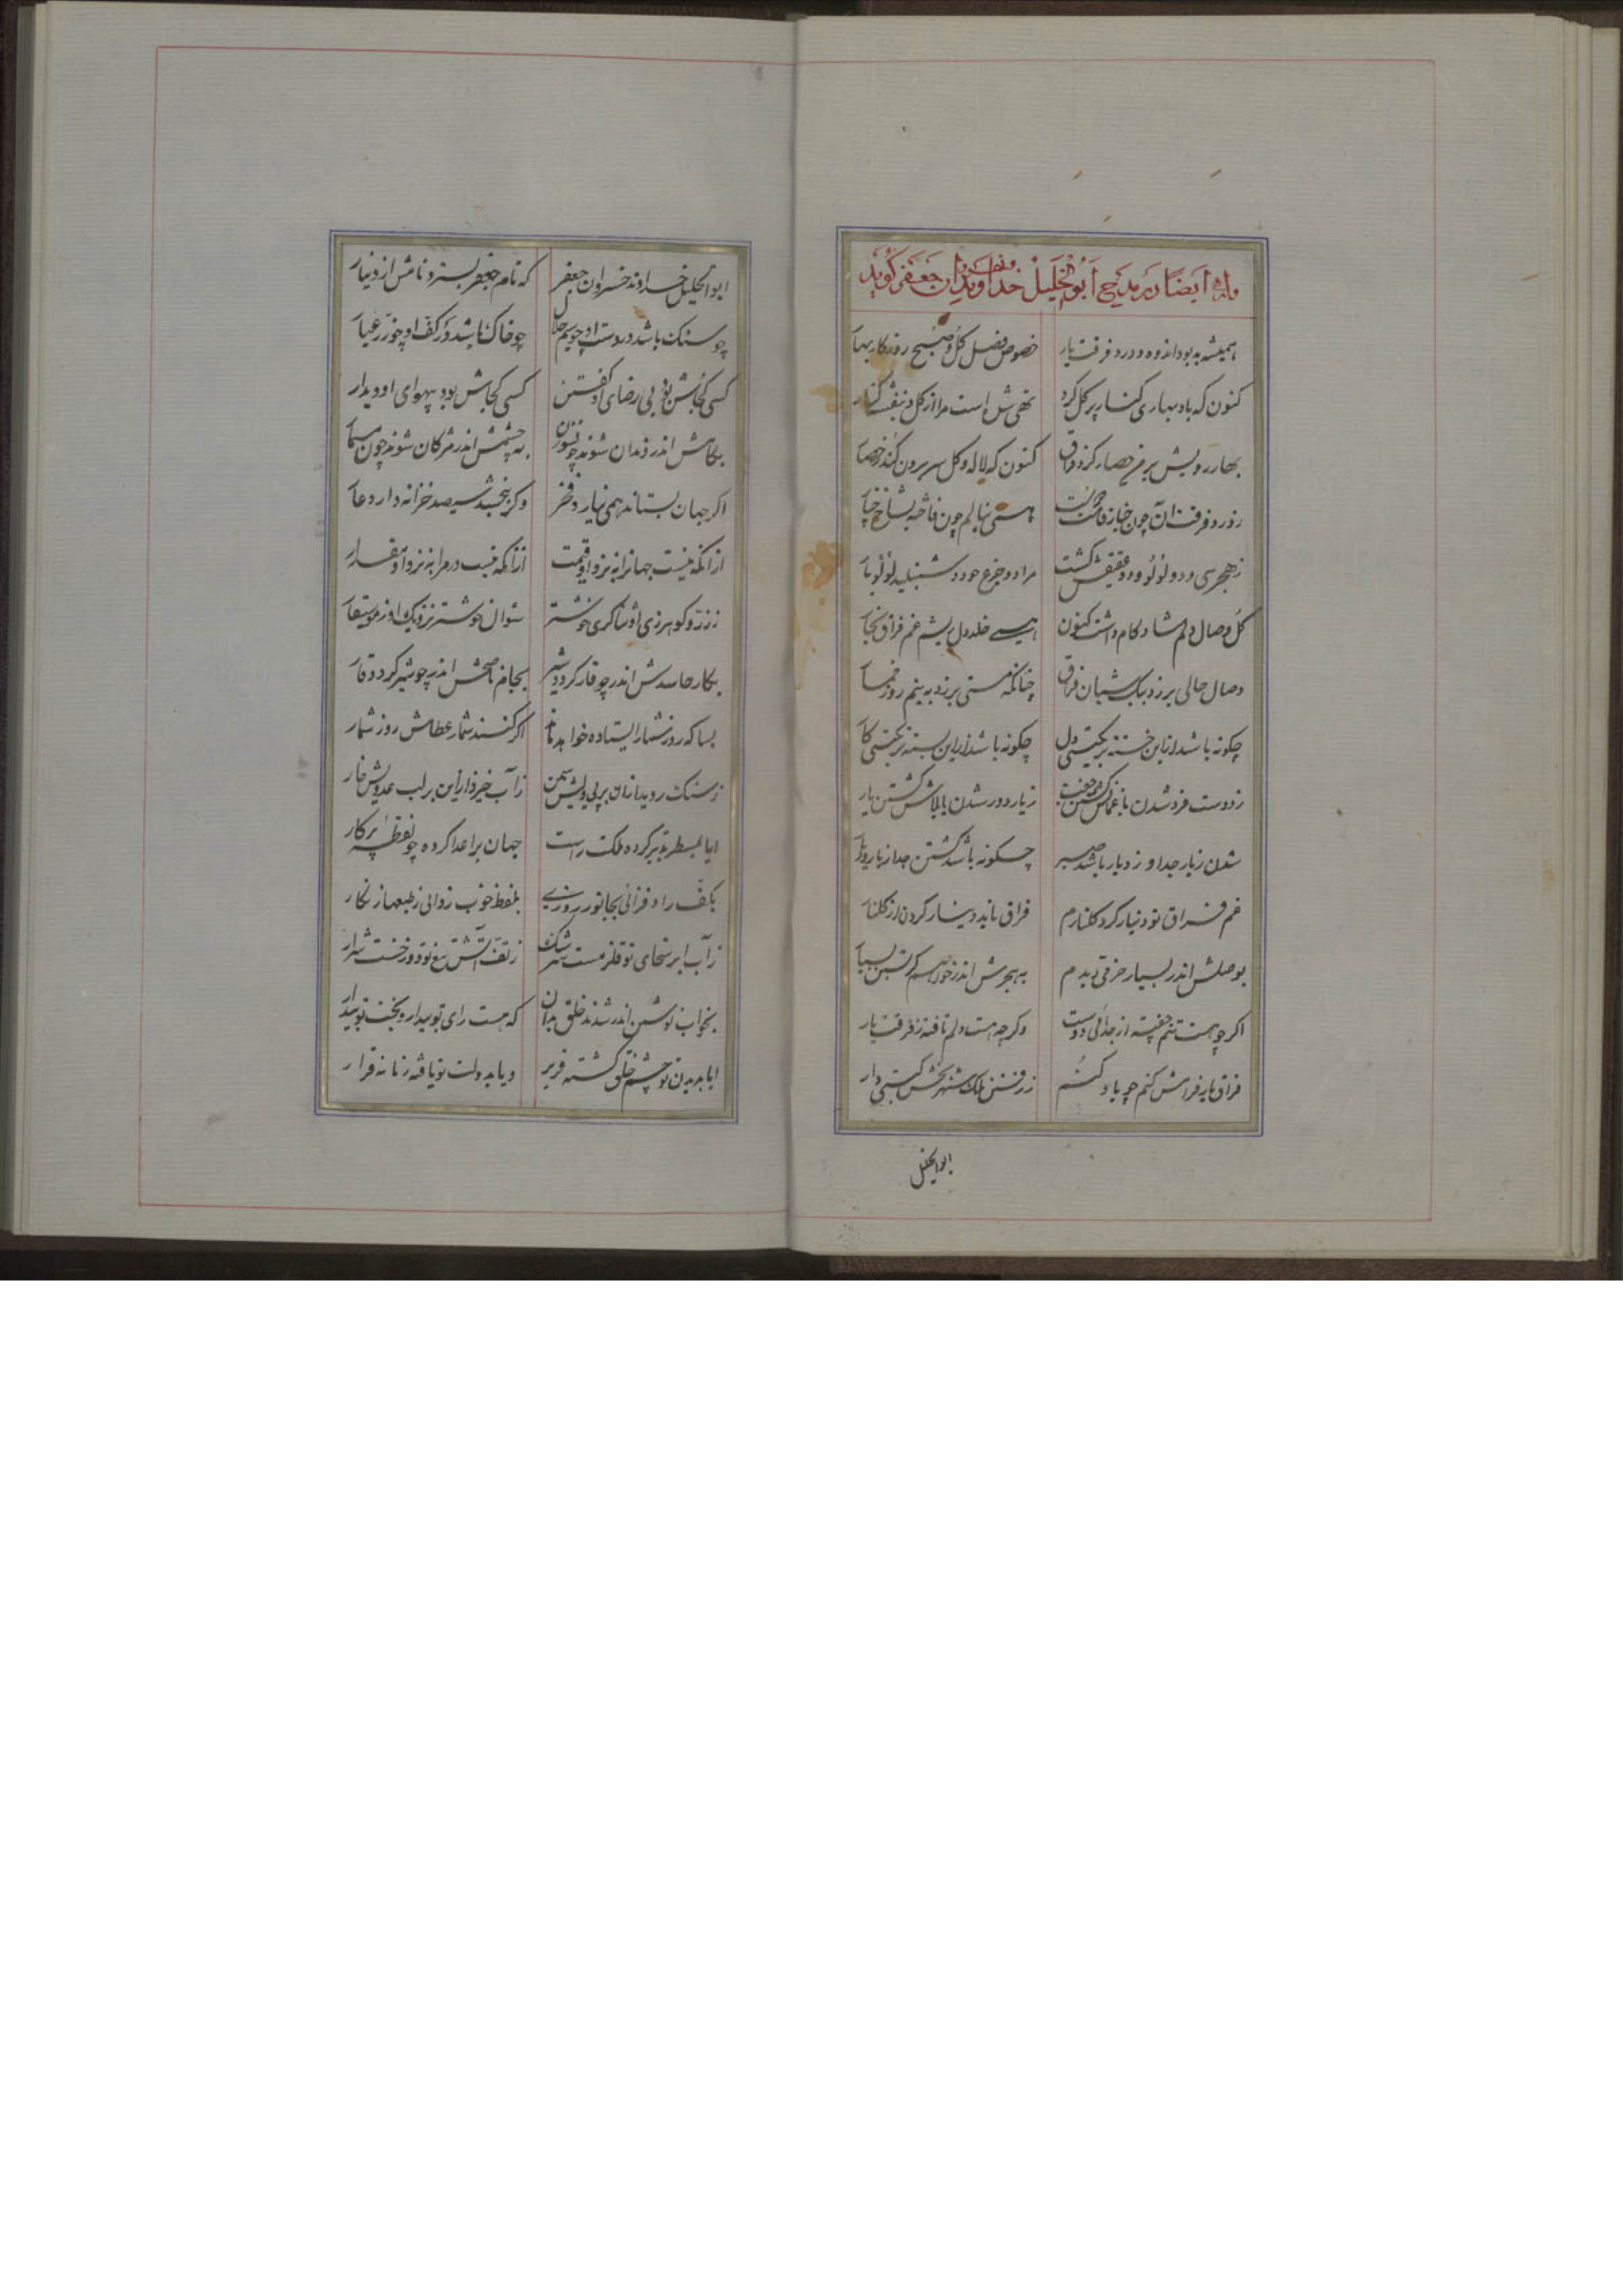 وله ایضا در مدیح ابوالخلیل خداوند خسروان جعفر گوید
همیشه بد بود اندوه و درد فرقت یار خصوص فصل گل و صبح روزکار بهار
کنون که باد بهاری کنار پر گل کرد تهی شده است مرا از گل و بنفشه کنار
بهار رویش بر من حصار کرد فراق کنون که لاله و گل سر برون کند ز حصار
ز درد فرقت آن چون خیار قامت دوست همی بنالم چون فاخته بشاخ خیار
ز هجر سی و دو لولو و دو عقیقش گشت مرا دو جزع چو دو شنبلید لولوبار
گل وصال دلم شاد و کام داشت کنون همی خلد دل ریشم غم فراق بخار
وصال حالی برزد بیک شبان فراق چنانکه مستی برزد به نیم روز خمار
چگونه باشد ازین خسته‌تر بگیتی دل چگونه باشد ازین بسته‌تر بگیتی کار
ز دوست فرد شدن با غمانش گشتن جفت ز یار دور شدن با بلاش گشتن یار
شدن ز یار جدا و ز دیار باشد صبر چگونه باشد گشتن جدا ز یار و دیار
غم فراق تو دینار کرد گلنارم فراق باید دینار کردن از گلنار
بوصلش اندر بسیار خرمی دیدم به هجرش اندر خواهم گریستن بسیار
اگر چو هست تنم خفته از جدائی دوست وگر چه هست دلم تافته ز فرقت یار
فراق یار فرامش کنم چو یاد کنم ز رفتن ملک شهربخش گیتی دار
ابوالخلیل
ابوالخلیل خداوند خسروان جعفر که نام جعفر بسترد نامش از دینار
چو سنک باشد در دست او چو سیم حلال چو خاک باشد در کف او چو زر عیار
کسی کجاش بود بی رضای او گفتن کسی کجاش بود بیهوای او دیدار
بکامش اندر دندان شوند چون سوزن به چشمش اندر مژگان شوند چون مسمار
اگر جهان بستاند همی نیارد فخر وگر ببخشد سیصد خزانه دارد عار
ازانکه نیست جهانرا به نزد او قیمت ازانکه نیست درم را به نزد او مقدار
ز زر و گوهر زی او ثناگری خوشتر سئوال خوشتر نزدیک او ز موسیقار
بکار حاسدش اندر چو قار گردد شیر بجام ناصحش اندر چو شیر گردد قار
بسا که روز شمار ایستاده خواهد ماند اگر کنند شمار عطاش روز شمار
ز سنک روید ازان بر پی ولیش سمن ز آب خیزد ازین بر لب عدویش خار
ایا بمسطر تدبیر کرده ملکت راست جهان بر اعدا کرده چو نقطه پرگار
بکف راد فزائی بجانور روزی بلفظ خوب زدائی ز طبعها زنگار
ز آب ابر سخای تو قلزمست سرشک ز تف آتش تیغ تو دوزخست شرار
بخواب نوشین اندر شدند خلق بدان که هست رای تو بیدار و بخت تو بیدار
ایا بدیدن تو چشم خلق گشته قریر و یا بدولت تو یافته زمانه قرار